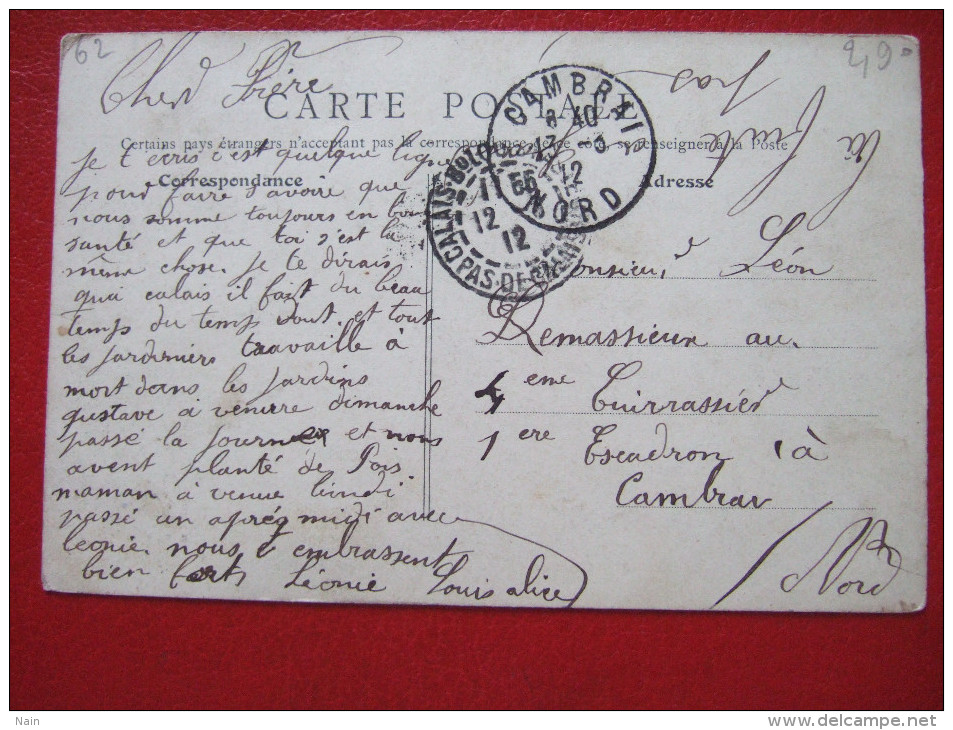 62
2,9
Cher Frère
CARTE POSTALE
Certains pays étrangers n'acceptant pas la correspondance de ce côté, se renseigner à la Poste
Correspondance
Adresse
je t ecris c'est quelque ligne
pour faire s'avoire que
nous somme toujours en bon
santé et que toi s'est la
même chose. Je te dirais
quai calais il fait du beau
temps du temps dout et tout
les jardiniers travaille à
mort dans les jardins
gustave à venure dimanche
passé la journee et nous
avent planté de Pois
maman à venue lundi
passé un apréq midi avec
leonie. nous t embrassent
bien fort Léonie Louis alice
la suite
CAMBRAI
8 40
12
NORD
CALAIS
11
12
12
PAS-DE-CALAIS
Monsieur Léon
Demassieux au
4 eme Cuirrassier
1 ere Escadron à
Cambrai
Nord
Nain
www.delcampe.net